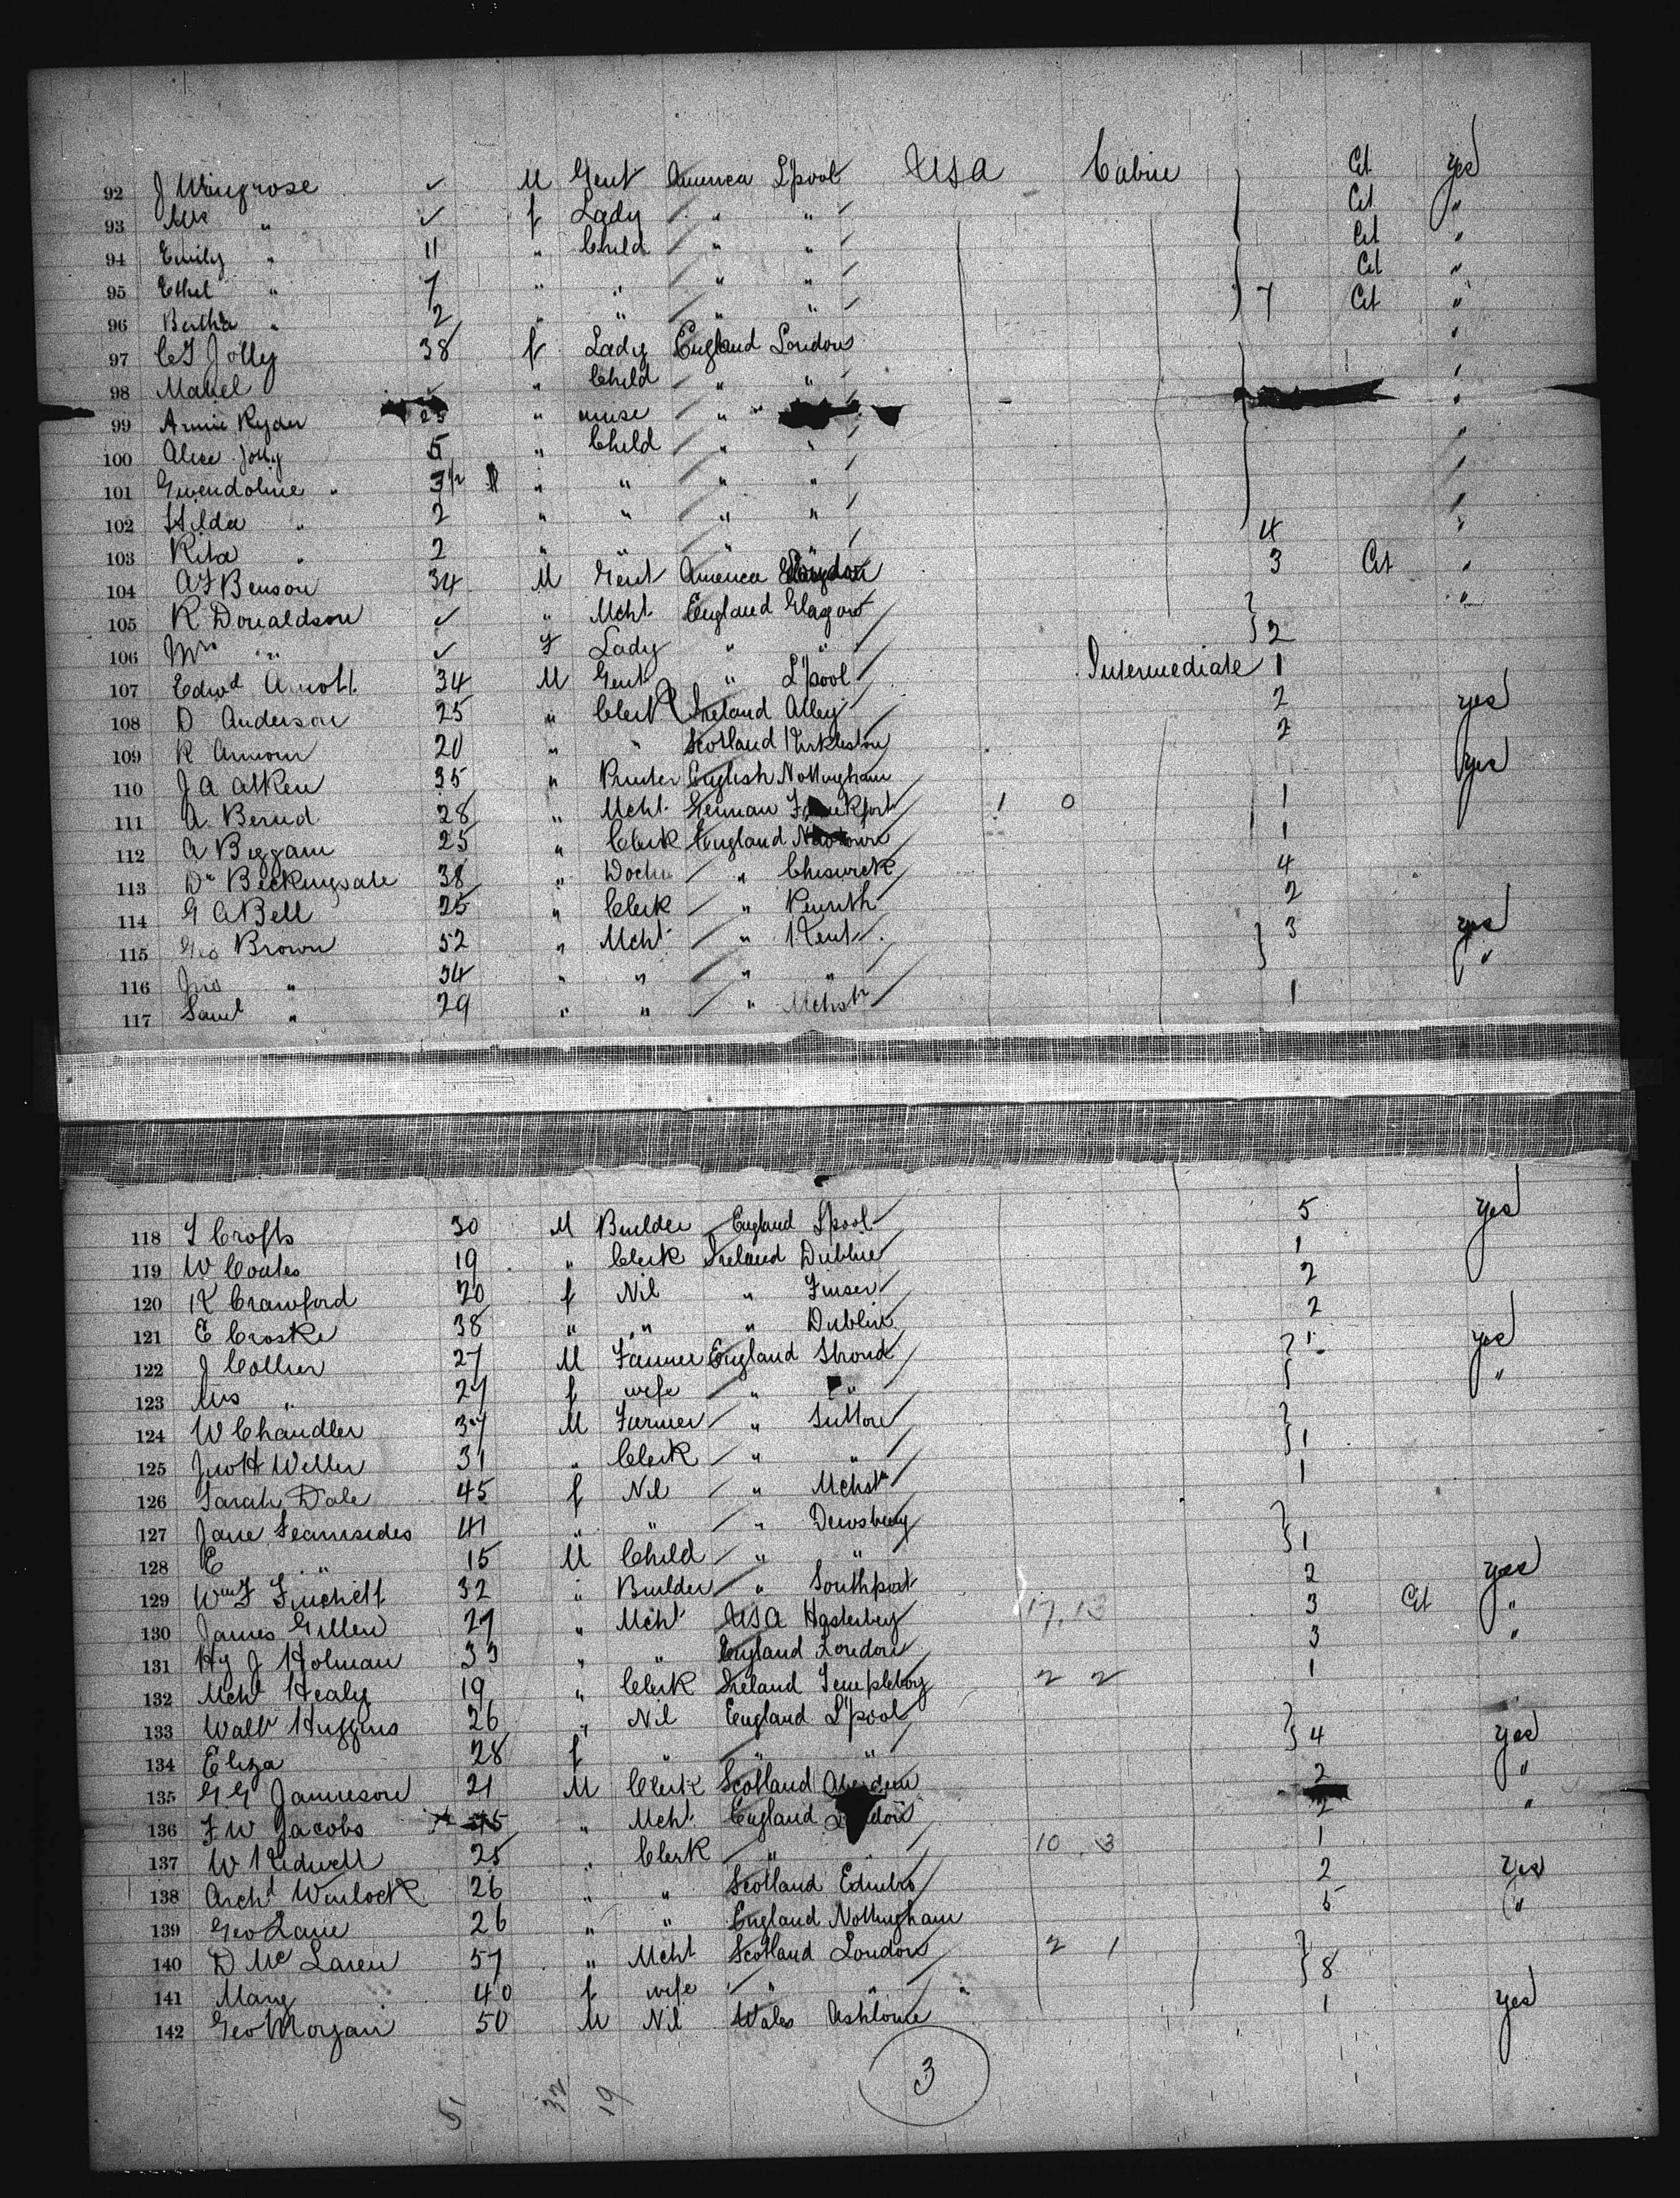 92 J Wingrose ✓ M Gent America L'pool USA Cabin Cit yes
93 Mrs " ✓ f Lady " " Cit "
94 Emily " 11 " Child " " Cit "
95 Ethel " 7 " " " " Cit "
96 Bertha " 2 " " " " 7 Cit "
97 C J Jolly 38 f Lady England London "
98 Mabel ✓ " Child " " "
99 Annie Ryder 23 " nurse " " "
100 Alice Jolly 5 " Child " " "
101 Gwendoline " 3 1/2 " " " "
102 Hilda " 2 " " " "
103 Rita " 2 " " " " 4 "
104 A F Benson 34 M Gent America 3 Cit "
105 R Donaldson ✓ " Mcht England Glagow "
106 Mrs " ✓ F Lady " " 2
107 Edwd Arnott 34 M Gent " L'pool Intermediate 1
108 D Anderson 25 " Clerk Ireland Alley 2 yes
109 R Armour 20 " " Scotland Kirkliston 2
110 J A Atken 35 " Printer English Nottingham yes
111 A Bernd 28 " Mcht German Frankfort 1 0 1
112 A Biggam 25 " Clerk England Newtown 1
113 Dr Beckingsale 38 " Doctor " Cheswick 4
114 G A Bell 25 " Clerk " Penrith 2
115 Geo Brown 52 " Mcht " Kent 3 yes
116 Jno " 34 " " " " "
117 Saml " 29 " " " Mchstr 1
118 T Crofts 30 M Builder England L'pool 5 yes
119 W Coates 19 " Clerk Ireland Dublin 1
120 K Crawford 20 f Nil " 2
121 E Croske 38 " " " Dublin 2
122 J Collier 27 M Farmer England Stroud 1 yes
123 Mrs " 27 f wife " " "
124 W Chandler 37 M Farmer " Sutton
125 Jno H Weller 31 " Clerk " " 1
126 Sarah Dale 45 f Nil " Mchstr 1
127 Jane Seamsides 41 " " " Dewsbury
128 E " 15 M Child " " 1
129 Wm F Finchett 32 " Builder " Southport 2 yes
130 James Gillen 27 " Mcht USA 17.13 3 Cit "
131 Hy J Holman 33 " " England London 3 "
132 Mchl Healy 19 " Clerk Ireland 2 2 1
133 Walt Huggins 26 " Nil England L'pool
134 Eliza 28 f " " " 4 yes
135 G G Jamieson 21 M Clerk Scotland Aberdeen 2 "
136 F W Jacobs 45 " Mcht England London 2 "
137 W Kidwell 25 " Clerk " " 10 3 1
138 Archd Winlock 26 " " Scotland Edinbro 2 yes
139 Geo Lane 26 " " England Nottingham 5 "
140 D McLaren 57 " Mcht Scotland London 2 1
141 Mary 40 f wife " " 8
142 Geo Morgan 50 M Nil Wales 1 yes
3
51 32 19